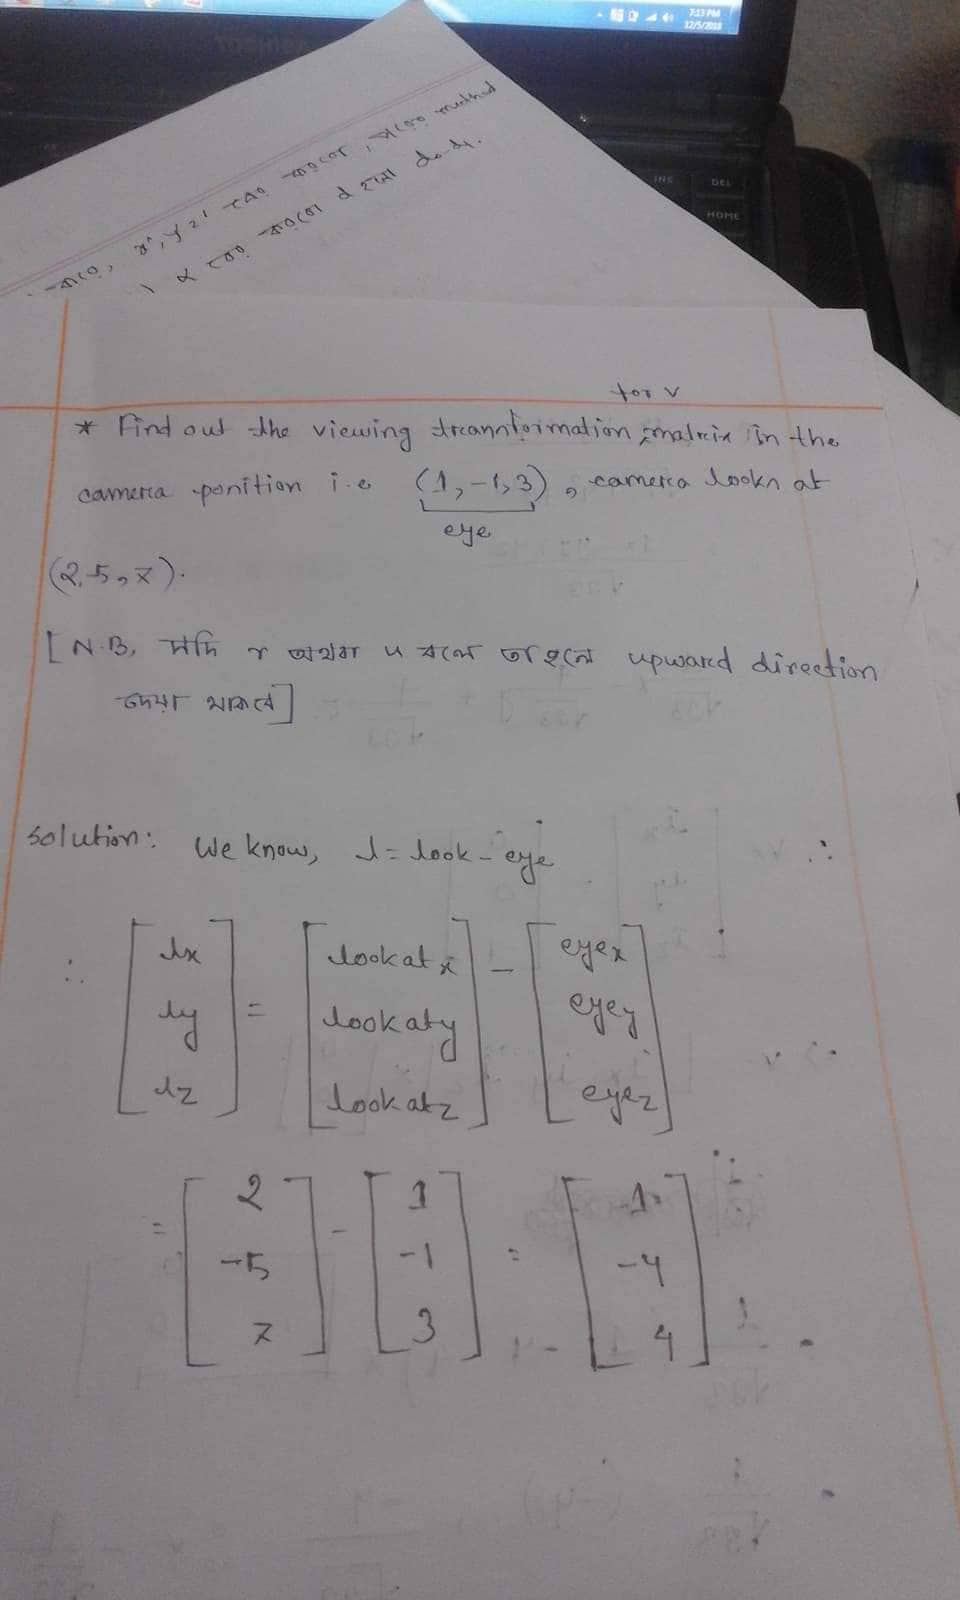 7:13 PM
12/5/2018
TOSHIBA
INS
DEL
HOME
method
for v
* Find out the viewing transformation matrix in the
camera position i.e (1,-1,3), camera looks at
eye
(2,-5,7).
[N.B, যদি r অথবা u বলে তাহলে upward direction
দেয়া থাকবে]
Solution: We know, l = look - eye
∴ [lx ly lz] = [lookatx lookaty lookatz] - [eyex eyey eyez]
= [2 -5 7] - [1 -1 3] = [1 -4 4]